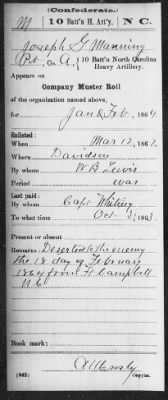 (Confederate.)
M | 10 Batt'n H. Art'y. | N C.
Joseph G Manning
Pvt, Co. A, 10 Batt'n North Carolina Heavy Artillery.
Appears on
Company Muster Roll
of the organization named above,
for Jan & Feb, 1864
Enlisted:
When Mar 12, 1862
Where Davidson
By whom W B Lewis
Period war
Last paid:
By whom Capt Whiting
To what time Oct 3, 1863
Present or absent
Remarks: Deserted to the enemy
the 18 day of February
1864 from Ft Campbell
N C
Book mark:
(642) Copyist.